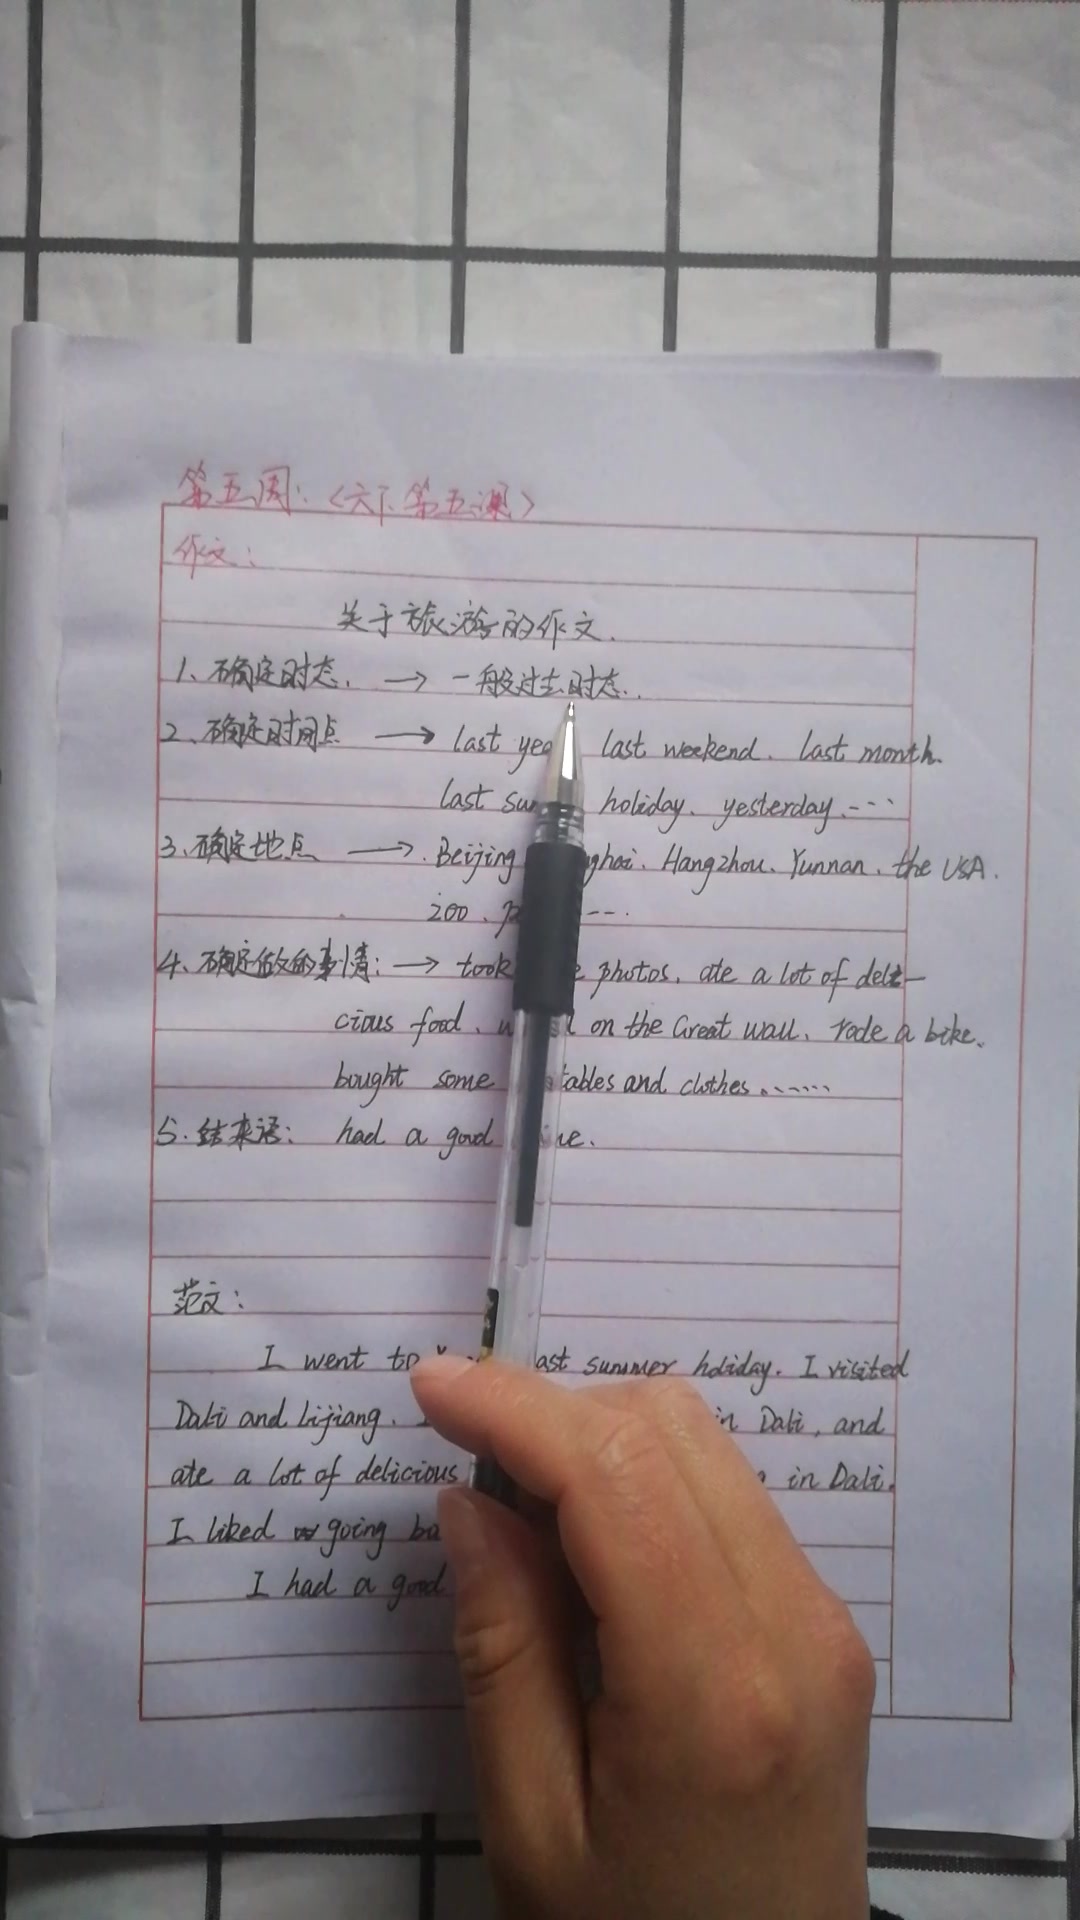 第五周：〈六下第五课〉
作文：
关于旅游的作文.
1、确定时态. → 一般过去时态.
2、确定时间点 → last last weekend. last month.
last holiday. yesterday. ---
3、确定地点 → Beijing Hangzhou. Yunnan. the USA.
zoo. ---.
4、确定做的事情: → took photos. ate a lot of deli-
cious food. on the Great wall. rode a bike.
bought some and clothes......
5. 结束语: had a good
范文:
I went to summer holiday. I visited
Dali and Lijiang. in Dali, and
ate a lot of delicious in Dali.
I liked going
I had a good